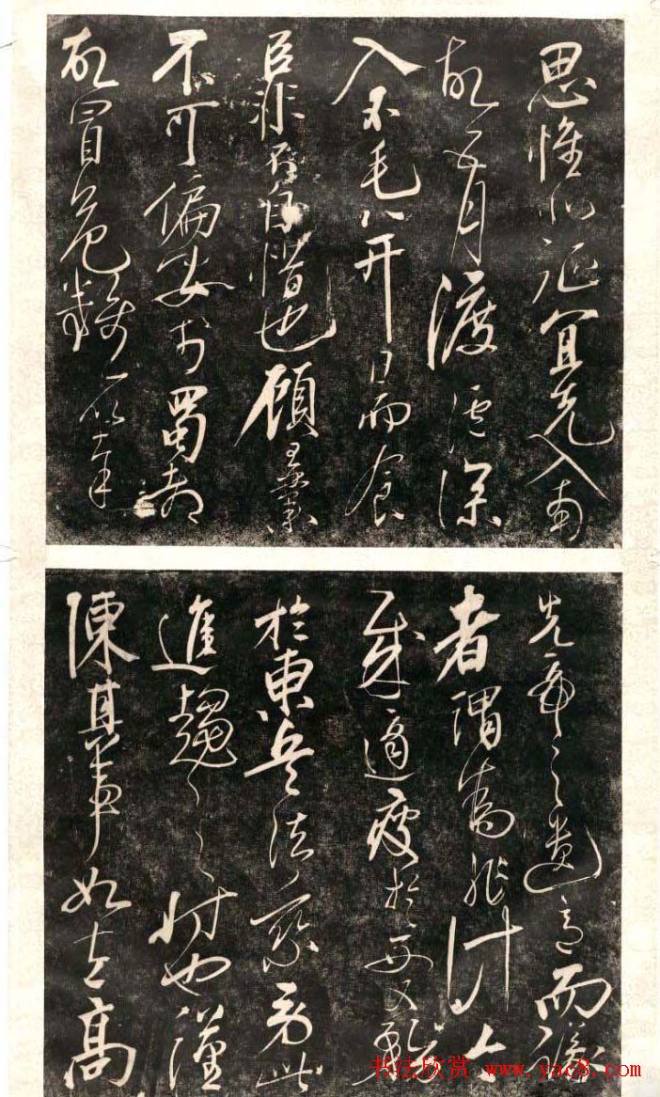 思惟北征宜先入南
故五月渡瀘深
入不毛并日而食
臣非不自惜也顧王業
不可偏安於蜀都
故冒危難以奉
先帝之遺意而議
者謂為非計今
賊適疲於西又務
於東兵法乘勞此
進趨之時也謹
陳其事如左高
书法欣赏 www.yac8.com